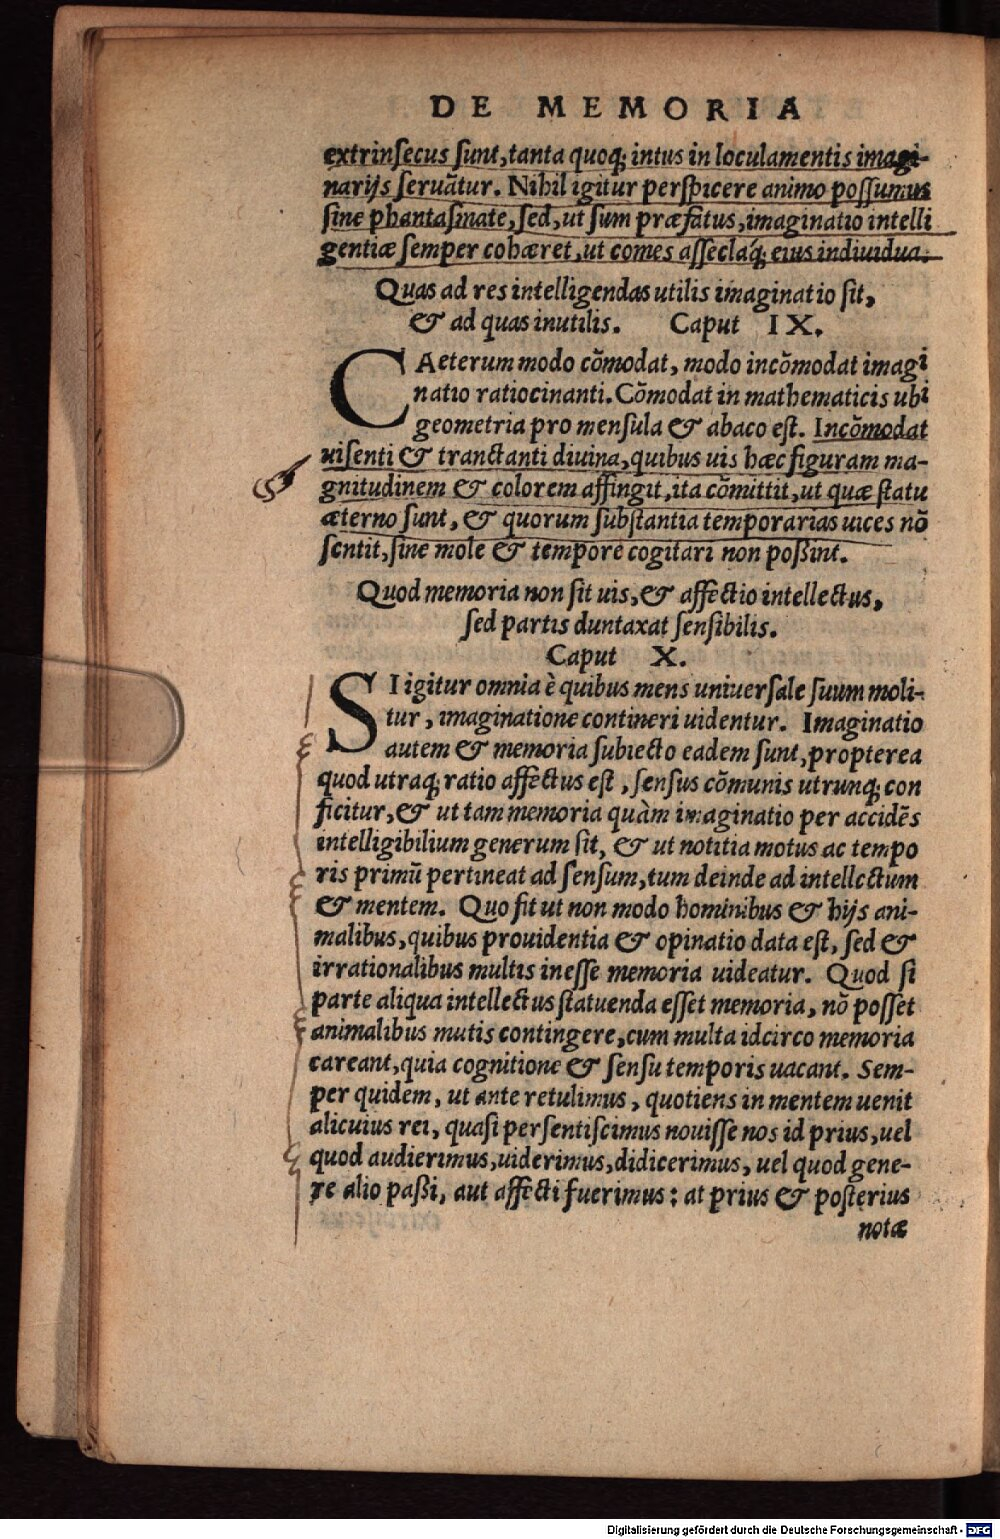 DE MEMORIA
extrinsecus sunt, tanta quoq; intus in loculamentis imagi-
narijs seruãtur. Nihil igitur perspicere animo possumus
sine phantasmate, sed, ut sum præfatus, imaginatio intelli
gentiæ semper cohæret, ut comes asseclaq́; eius indiuidua.
Quas ad res intelligendas utilis imaginatio sit,
& ad quas inutilis. Caput IX.
CAeterum modo cõmodat, modo incõmodat imagi
natio ratiocinanti. Cõmodat in mathematicis ubi
geometria pro mensula & abaco est. Incõmodat
uisenti & tranctanti diuina, quibus uis hæc figuram ma-
gnitudinem & colorem affingit, ita cõmittit, ut quæ statu
æterno sunt, & quorum substantia temporarias uices nõ
sentit, sine mole & tempore cogitari non poßint.
Quod memoria non sit uis, & affectio intellectus,
sed partis duntaxat sensibilis.
Caput X.
SI igitur omnia è quibus mens uniuersale suum moli-
tur, imaginatione contineri uidentur. Imaginatio
autem & memoria subiecto eadem sunt, propterea
quod utraq; ratio affectus est, sensus cõmunis utrunq; con
ficitur, & ut tam memoria quàm imaginatio per accidẽs
intelligibilium generum sit, & ut notitia motus ac tempo
ris primũ pertineat ad sensum, tum deinde ad intellectum
& mentem. Quo fit ut non modo hominibus & hijs ani-
malibus, quibus prouidentia & opinatio data est, sed &
irrationalibus multis inesse memoria uideatur. Quod si
parte aliqua intellectus statuenda esset memoria, nõ posset
animalibus mutis contingere, cum multa idcirco memoria
careant, quia cognitione & sensu temporis uacant. Sem-
per quidem, ut ante retulimus, quotiens in mentem uenit
alicuius rei, quasi persentiscimus nouisse nos id prius, uel
quod audierimus, uiderimus, didicerimus, uel quod gene-
re alio paßi, aut affecti fuerimus: at prius & posterius
notæ
Digitalisierung gefördert durch die Deutsche Forschungsgemeinschaft - DFG